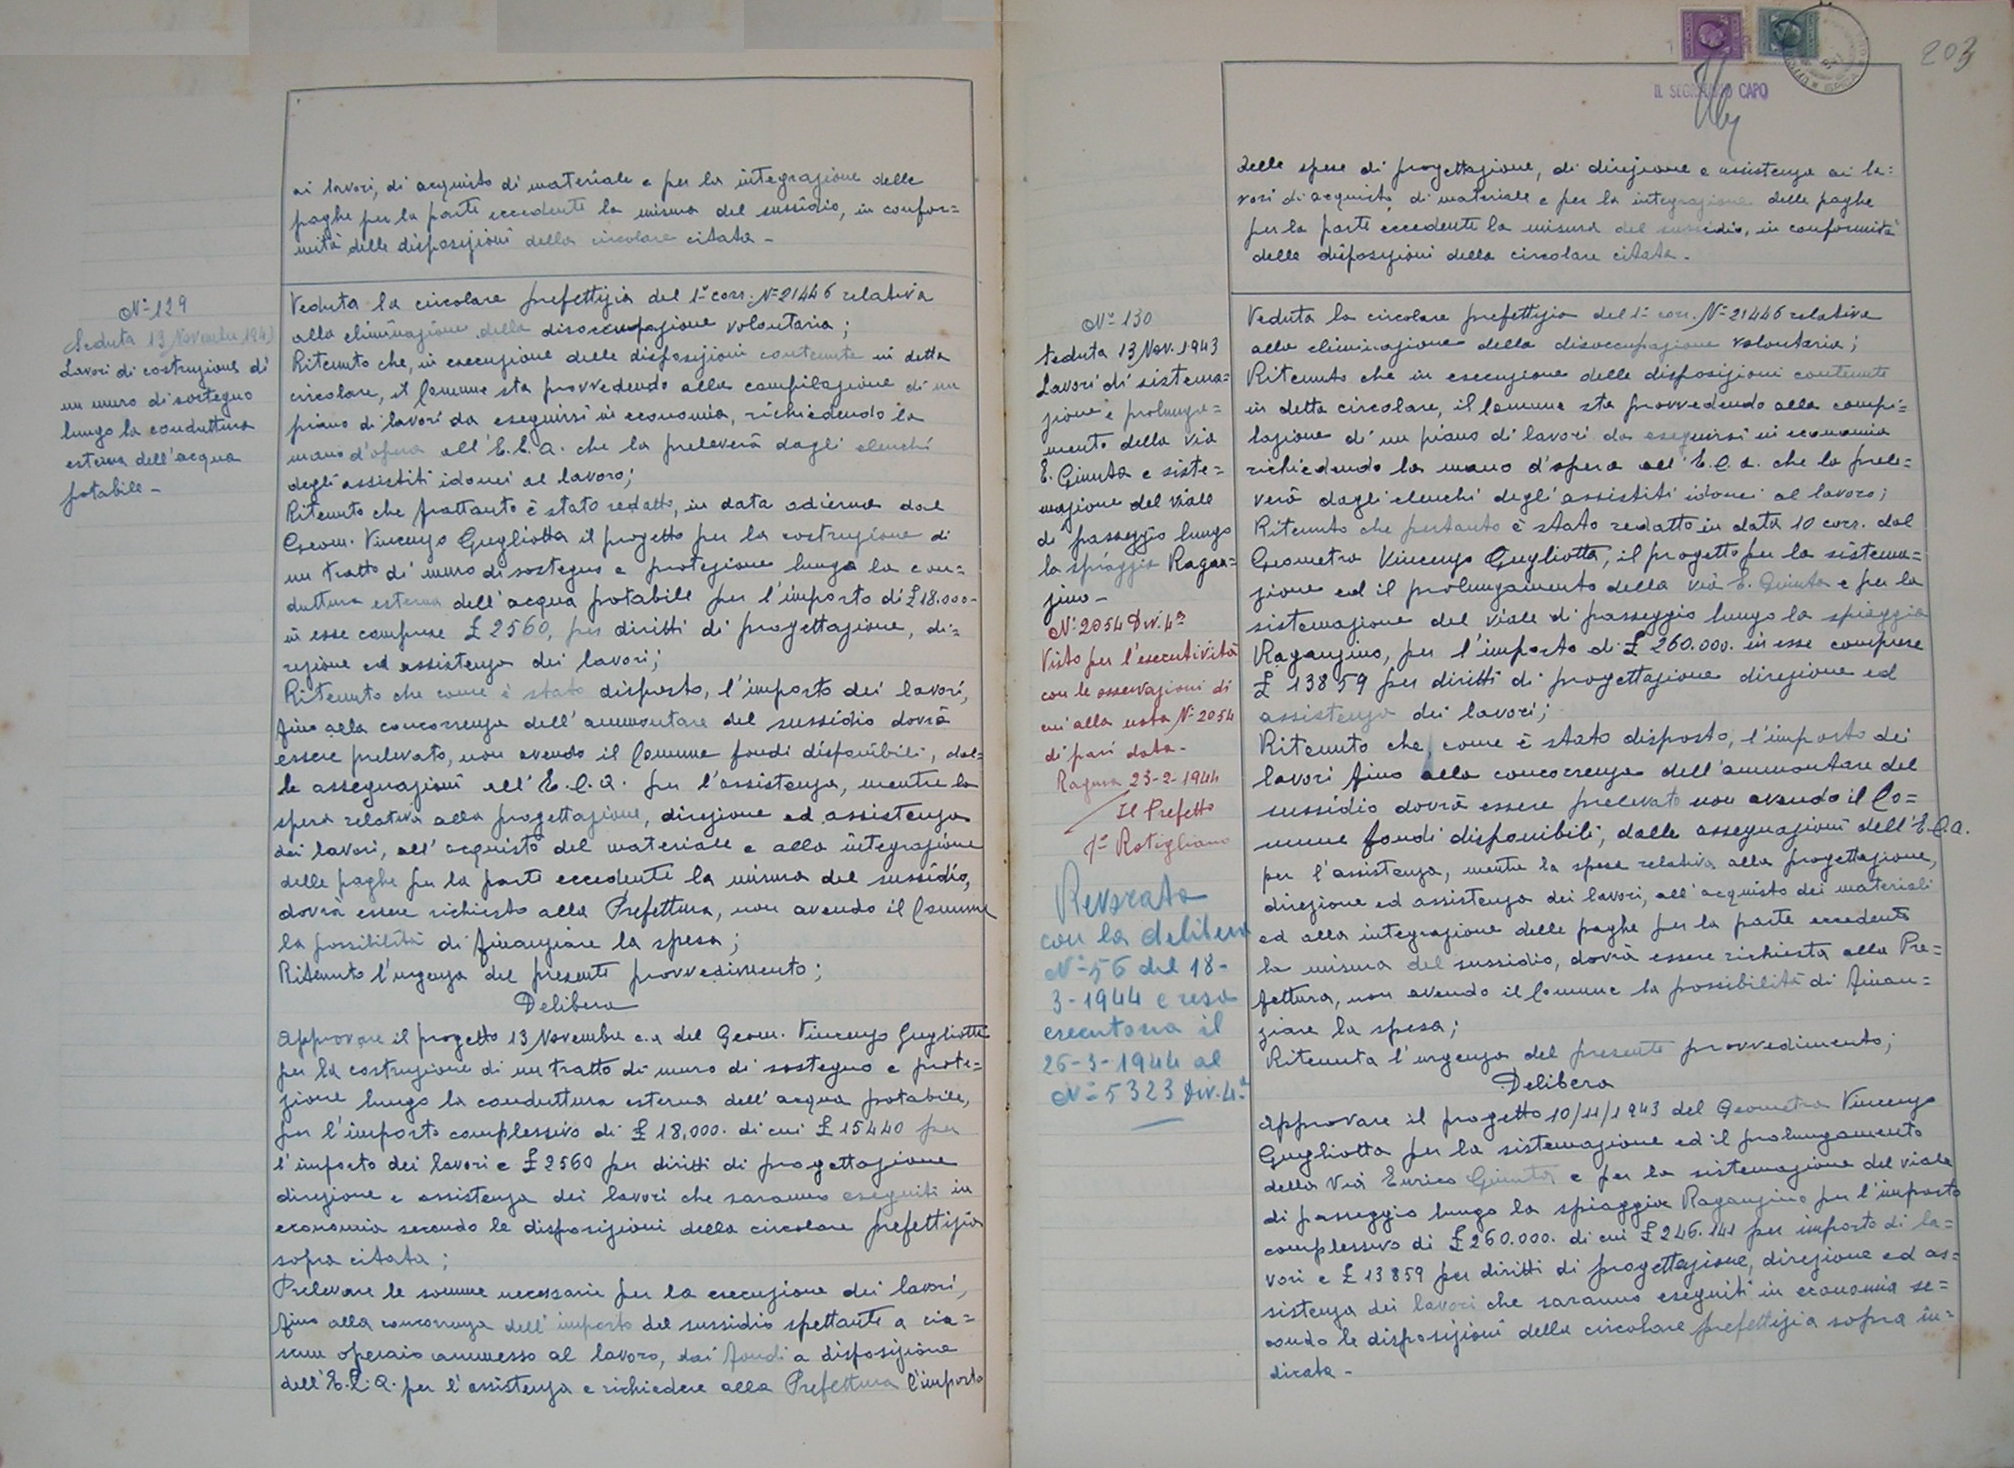 ai lavori, di acquisto di materiale e per la integrazione delle
paghe per la parte eccedente la misura del sussidio, in confor=
mità delle disposizioni della circolare citata -
N° 129
Seduta 13 Novembre 1943
Lavori di costruzione di
un muro di sostegno
lungo la conduttura
esterna dell'acqua
potabile -
Veduta la circolare prefettizia del 1° corr. N° 21446 relativa
alla eliminazione della disoccupazione volontaria;
Ritenuto che, in esecuzione delle disposizioni contenute in detta
circolare, il Comune sta provvedendo alla compilazione di un
piano di lavori da eseguirsi in economia, richiedendo la
mano d'opera all'E.C.A. che la preleverà dagli elenchi
degli assistiti idonei al lavoro;
Ritenuto che frattanto è stato redatto, in data odierna dal
Geom. Vincenzo Gugliotta il progetto per la costruzione di
un tratto di muro di sostegno e protezione lungo la con=
duttura esterna dell'acqua potabile per l'importo di £ 18.000-
in esse comprese £ 2560, per diritti di progettazione, di=
rezione ed assistenza dei lavori;
Ritenuto che come è stato disposto, l'importo dei lavori,
fino alla concorrenza dell'ammontare del sussidio dovrà
essere prelevato, non avendo il Comune fondi disponibili, dal=
le assegnazioni all'E.C.A. per l'assistenza, mentre la
spesa relativa alla progettazione, direzione ed assistenza
dei lavori, all'acquisto del materiale e alla integrazione
delle paghe per la parte eccedente la misura del sussidio,
dovrà essere richiesto alla Prefettura, non avendo il Comune
la possibilità di finanziare la spesa;
Ritenuto l'urgenza del presente provvedimento;
Delibera
Approvare il progetto 13 Novembre c.a del Geom. Vincenzo Gugliotta
per la costruzione di un tratto di muro di sostegno e prote=
zione lungo la conduttura esterna dell'acqua potabile,
per l'importo complessivo di £ 18,000. di cui £ 15440 per
l'importo dei lavori e £ 2560 per diritti di progettazione
direzione e assistenza dei lavori che saranno eseguiti in
economia secondo le disposizioni della circolare prefettizia
sopra citata;
Prelevare le somme necessarie per la esecuzione dei lavori,
fino alla concorrenza dell'importo del sussidio spettante a cia=
scun operaio ammesso al lavoro, dai fondi a disposizione
dell'E.C.A. per l'assistenza e richiedere alla Prefettura l'importo
203
IL SEGRETARIO CAPO
delle spese di progettazione, di direzione e assistenza ai la=
vori di acquisto di materiale e per la integrazione delle paghe
per la parte eccedente la misura del sussidio, in conformità
delle disposizioni della circolare citata -
N° 130
Seduta 13 Nov. 1943
Lavori di sistema=
zione e prolunga=
mento della via
E. Giunta e siste=
mazione del viale
di passeggio lungo
la spiaggia Ragan=
zino -
N° 2054 Div. 4ª
Visto per l'esecutività
con le osservazioni di
cui alla nota N° 2054
di pari data -
Ragusa 23-2-1944
Il Prefetto
Revocata
con la delibera
N° 56 del 18-
3-1944 e resa
esecutoria il
26-3-1944 al
N° 5323 Div. 4ª
Veduta la circolare prefettizia del 1° corr. N° 21446 relativa
alla eliminazione della disoccupazione volontaria;
Ritenuto che in esecuzione delle disposizioni contenute
in detta circolare, il Comune sta provvedendo alla compi=
lazione di un piano di lavori da eseguirsi in economia
richiedendo la mano d'opera all'E.C.A. che la prele=
verà dagli elenchi degli assistiti idonei al lavoro;
Ritenuto che pertanto è stato redatto in data 10 corr. dal
Geometra Vincenzo Gugliotta, il progetto per la sistema=
zione ed il prolungamento della via E. Giunta e per la
sistemazione del viale di passeggio lungo la spiaggia
Raganzino, per l'importo di £ 260.000. in esse comprese
£ 13859 per diritti di progettazione direzione ed
assistenza dei lavori;
Ritenuto che, come è stato disposto, l'importo dei
lavori fino alla concorrenza dell'ammontare del
sussidio dovrà essere prelevato non avendo il Co=
mune fondi disponibili, dalle assegnazioni dell'E.C.A.
per l'assistenza, mentre la spesa relativa alla progettazione,
direzione ed assistenza dei lavori, all'acquisto dei materiali
ed alla integrazione delle paghe per la parte eccedente
la misura del sussidio, dovrà essere richiesta alla Pre=
fettura, non avendo il Comune la possibilità di finan=
ziare la spesa;
Ritenuta l'urgenza del presente provvedimento;
Delibera
Approvare il progetto 10/11/1943 del Geometra Vincenzo
Gugliotta per la sistemazione ed il prolungamento
della via Enrico Giunta e per la sistemazione del viale
di passeggio lungo la spiaggia Raganzino per l'importo
complessivo di £ 260.000. di cui £ 246.141 per importo di la=
vori e £ 13859 per diritti di progettazione, direzione ed as=
sistenza dei lavori che saranno eseguiti in economia se=
condo le disposizioni della circolare prefettizia sopra in=
dicata -